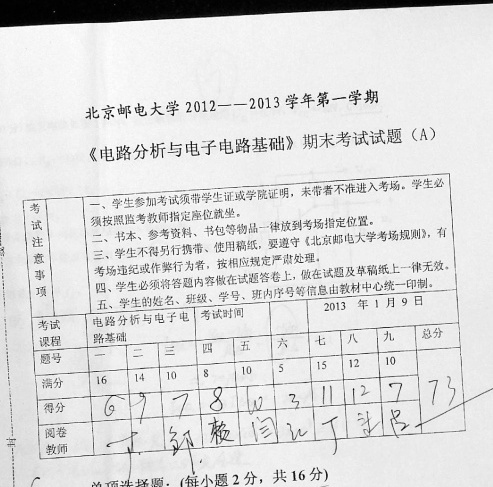 北京邮电大学2012——2013学年第一学期
《电路分析与电子电路基础》期末考试试题（A）
考试注意事项
一、学生参加考试须带学生证或学院证明，未带者不准进入考场。学生必
须按照监考教师指定座位就坐。
二、书本、参考资料、书包等物品一律放到考场指定位置。
三、学生不得另行携带、使用稿纸，要遵守《北京邮电大学考场规则》，有
考场违纪或作弊行为者，按相应规定严肃处理。
四、学生必须将答题内容做在试题答卷上，做在试题及草稿纸上一律无效。
五、学生的姓名、班级、学号、班内序号等信息由教材中心统一印制。
考试课程 电路分析与电子电路基础 考试时间 2013年1月9日
题号 一 二 三 四 五 六 七 八 九 总分
满分 16 14 10 8 10 5 15 12 10
得分 6 9 7 8 10 3 11 12 7 73
阅卷教师
单项选择题：(每小题2分，共16分)